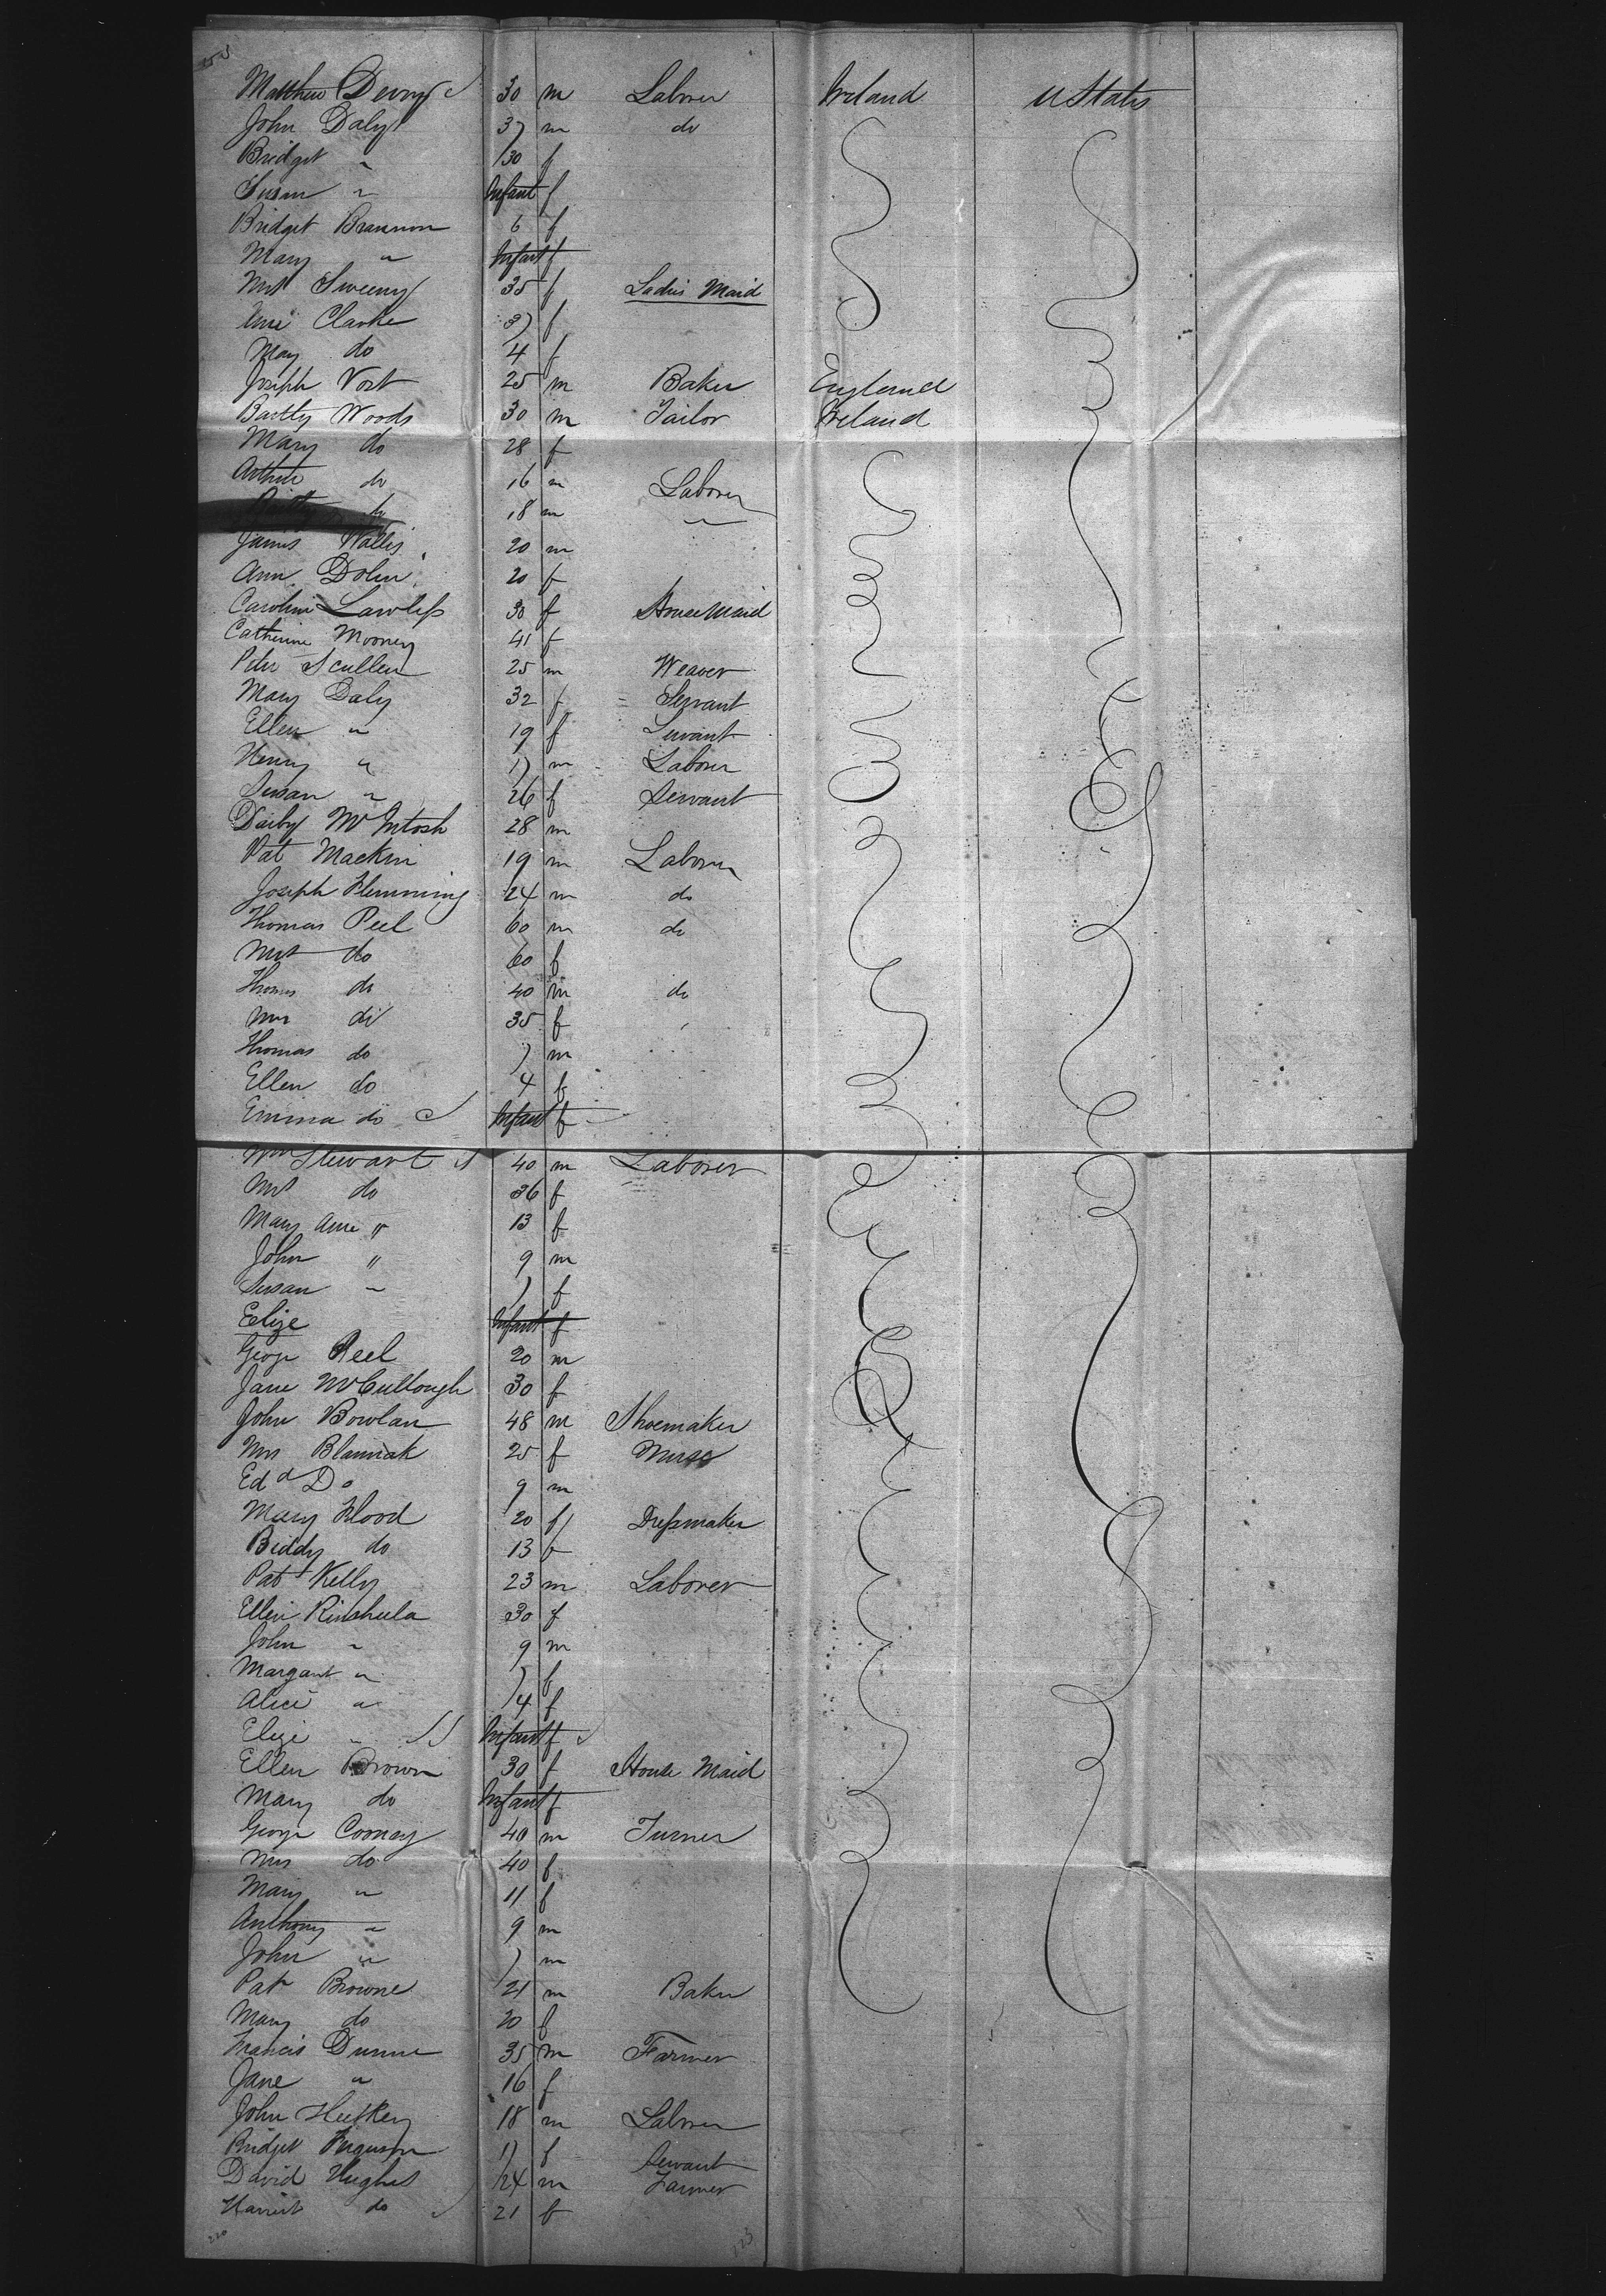 Matthew Devoy 30 m Laborer Ireland U States
John Daly 37 m do
Bridget " 30 f
Susan " Infant f
Bridget Brannon 6 f
Mary " Infant f
Mrs Sweeny 35 f Ladies Maid
Ann Clarke 37 f
May do 4 f
Joseph Vost 25 m Baker England
Bartly Woods 30 m Tailor Ireland
Mary do 28 f
Arthur do 16 m Laborer
do 18 m "
James Wallis 20 m
Ann Dolin 20 f
Caroline Lawless 30 f House Maid
Catherine Mooney 41 f
Peter Scullen 25 m Weaver
Mary Daly 32 f Servant
Ellen " 19 f Servant
Henry " 17 m Laborer
Susan " 26 f Servant
Darby McIntosh 28 m
Pat Mackin 19 m Laborer
Joseph Flemming 24 m do
Thomas Peel 60 m do
Mrs do 60 f
Thomas do 40 m do
Mrs do 35 f
Thomas do 7 m
Ellen do 4 f
Emma do Infant f
Wm Stewart 40 m Laborer
Mrs do 36 f
Mary Ann " 13 f
John " 9 m
Susan " 7 f
Elize Infant f
George Reel 20 m
Jane McCullough 30 f
John Bowlan 48 m Shoemaker
Mrs 25 f Nurse
Edd Do 9 m
Mary Flood 20 f Dressmaker
Biddy do 13 f
Pat Kelly 23 m Laborer
Ellen Rinshula 30 f
John " 9 m
Margaret " 7 f
Alice " 4 f
Elize " Infant f
Ellen Brown 30 f House Maid
Mary do Infant f
George Coonay 40 m Turner
Mrs do 40 f
Mary " 11 f
Anthony " 9 m
John " 7 m
Pat Browne 21 m Baker
Mary do 20 f
Francis Dunne 35 m Farmer
Jane " 16 f
John 18 m Laborer
Bridget Ferguson 17 f Servant
David Hughes 24 m Farmer
Harriet do 21 f
220 123